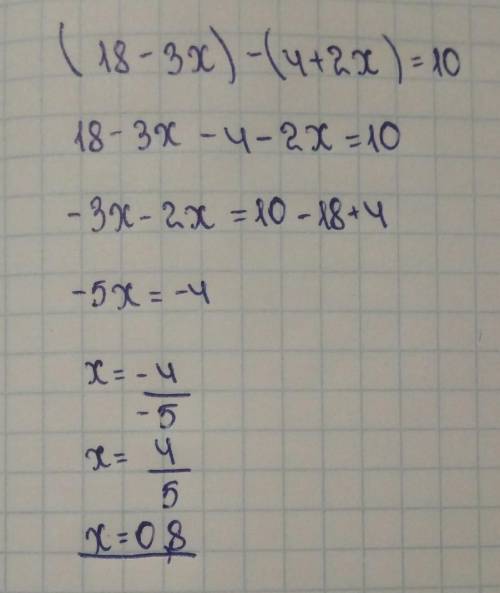 (18-3x)-(4+2x)=10
18-3x-4-2x=10
-3x-2x=10-18+4
-5x=-4
x=-4/-5
x=4/5
x=0,8